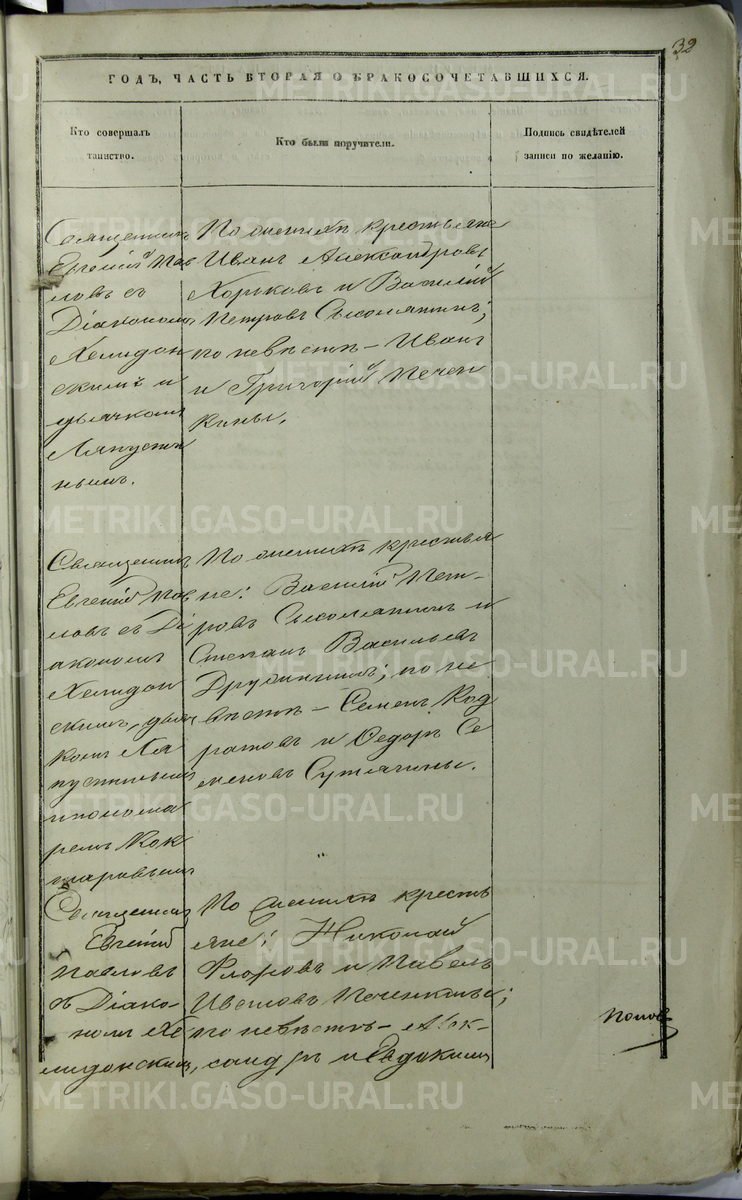 32
ГОДЪ, ЧАСТЬ ВТОРАЯ О БРАКОСОЧЕТАВШИХСЯ.
Кто совершалъ
таинство.
Кто были поручители.
Подпись свидѣтелей
записи по желанію.
Священникъ
Евгеній Пав
ловъ съ
Діакономъ
Хелидон
скимъ и
дьячкомъ
Ляпусти
нымъ.
По женихѣ крестьяне
Иванъ Александровъ
Хорьковъ и Василій
Петровъ Сысолятинъ;
по невѣстѣ – Иванъ
и Григорій Печен
кины.
Священникъ
Евгеній Пав
ловъ съ Ді
акономъ
Хелидон
скимъ, дьяч
комъ Ля
пустинымъ
и понома
ремъ Кок
шаровымъ
По женихѣ крестья
не: Василій Пет–
ровъ Сысолятинъ и
Степанъ Васильевъ
Дружининъ; по не
вѣстѣ – Семенъ Код
ратовъ и Федоръ Се
меновъ Сутягины.
Священникъ
Евгеній
Павловъ
съ Діако–
номъ Хе
лидонскимъ,
По женихѣ кресть
яне: Николай
Флоровъ и Павелъ
Ивановъ Печенкины;
по невѣстѣ – Алек–
сандръ и Евдокимъ
Попов
METRIKI.GASO-URAL.RU